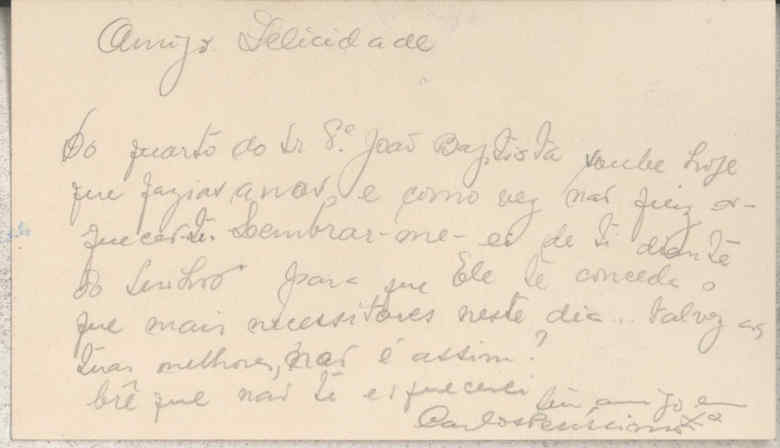 Amiga Felicidade
Do quarto do Sr P.e João Baptista soube hoje
que fazias anos e como vez não quiz es-
quecer-te. Lembrar-me-ei de ti diante
do Senhor para que Ele te conceda o
que mais necessitares neste dia... talvez as
tuas melhoras, não é assim?
Crê que não te esquecerei teu amigo em
Carlos Xto